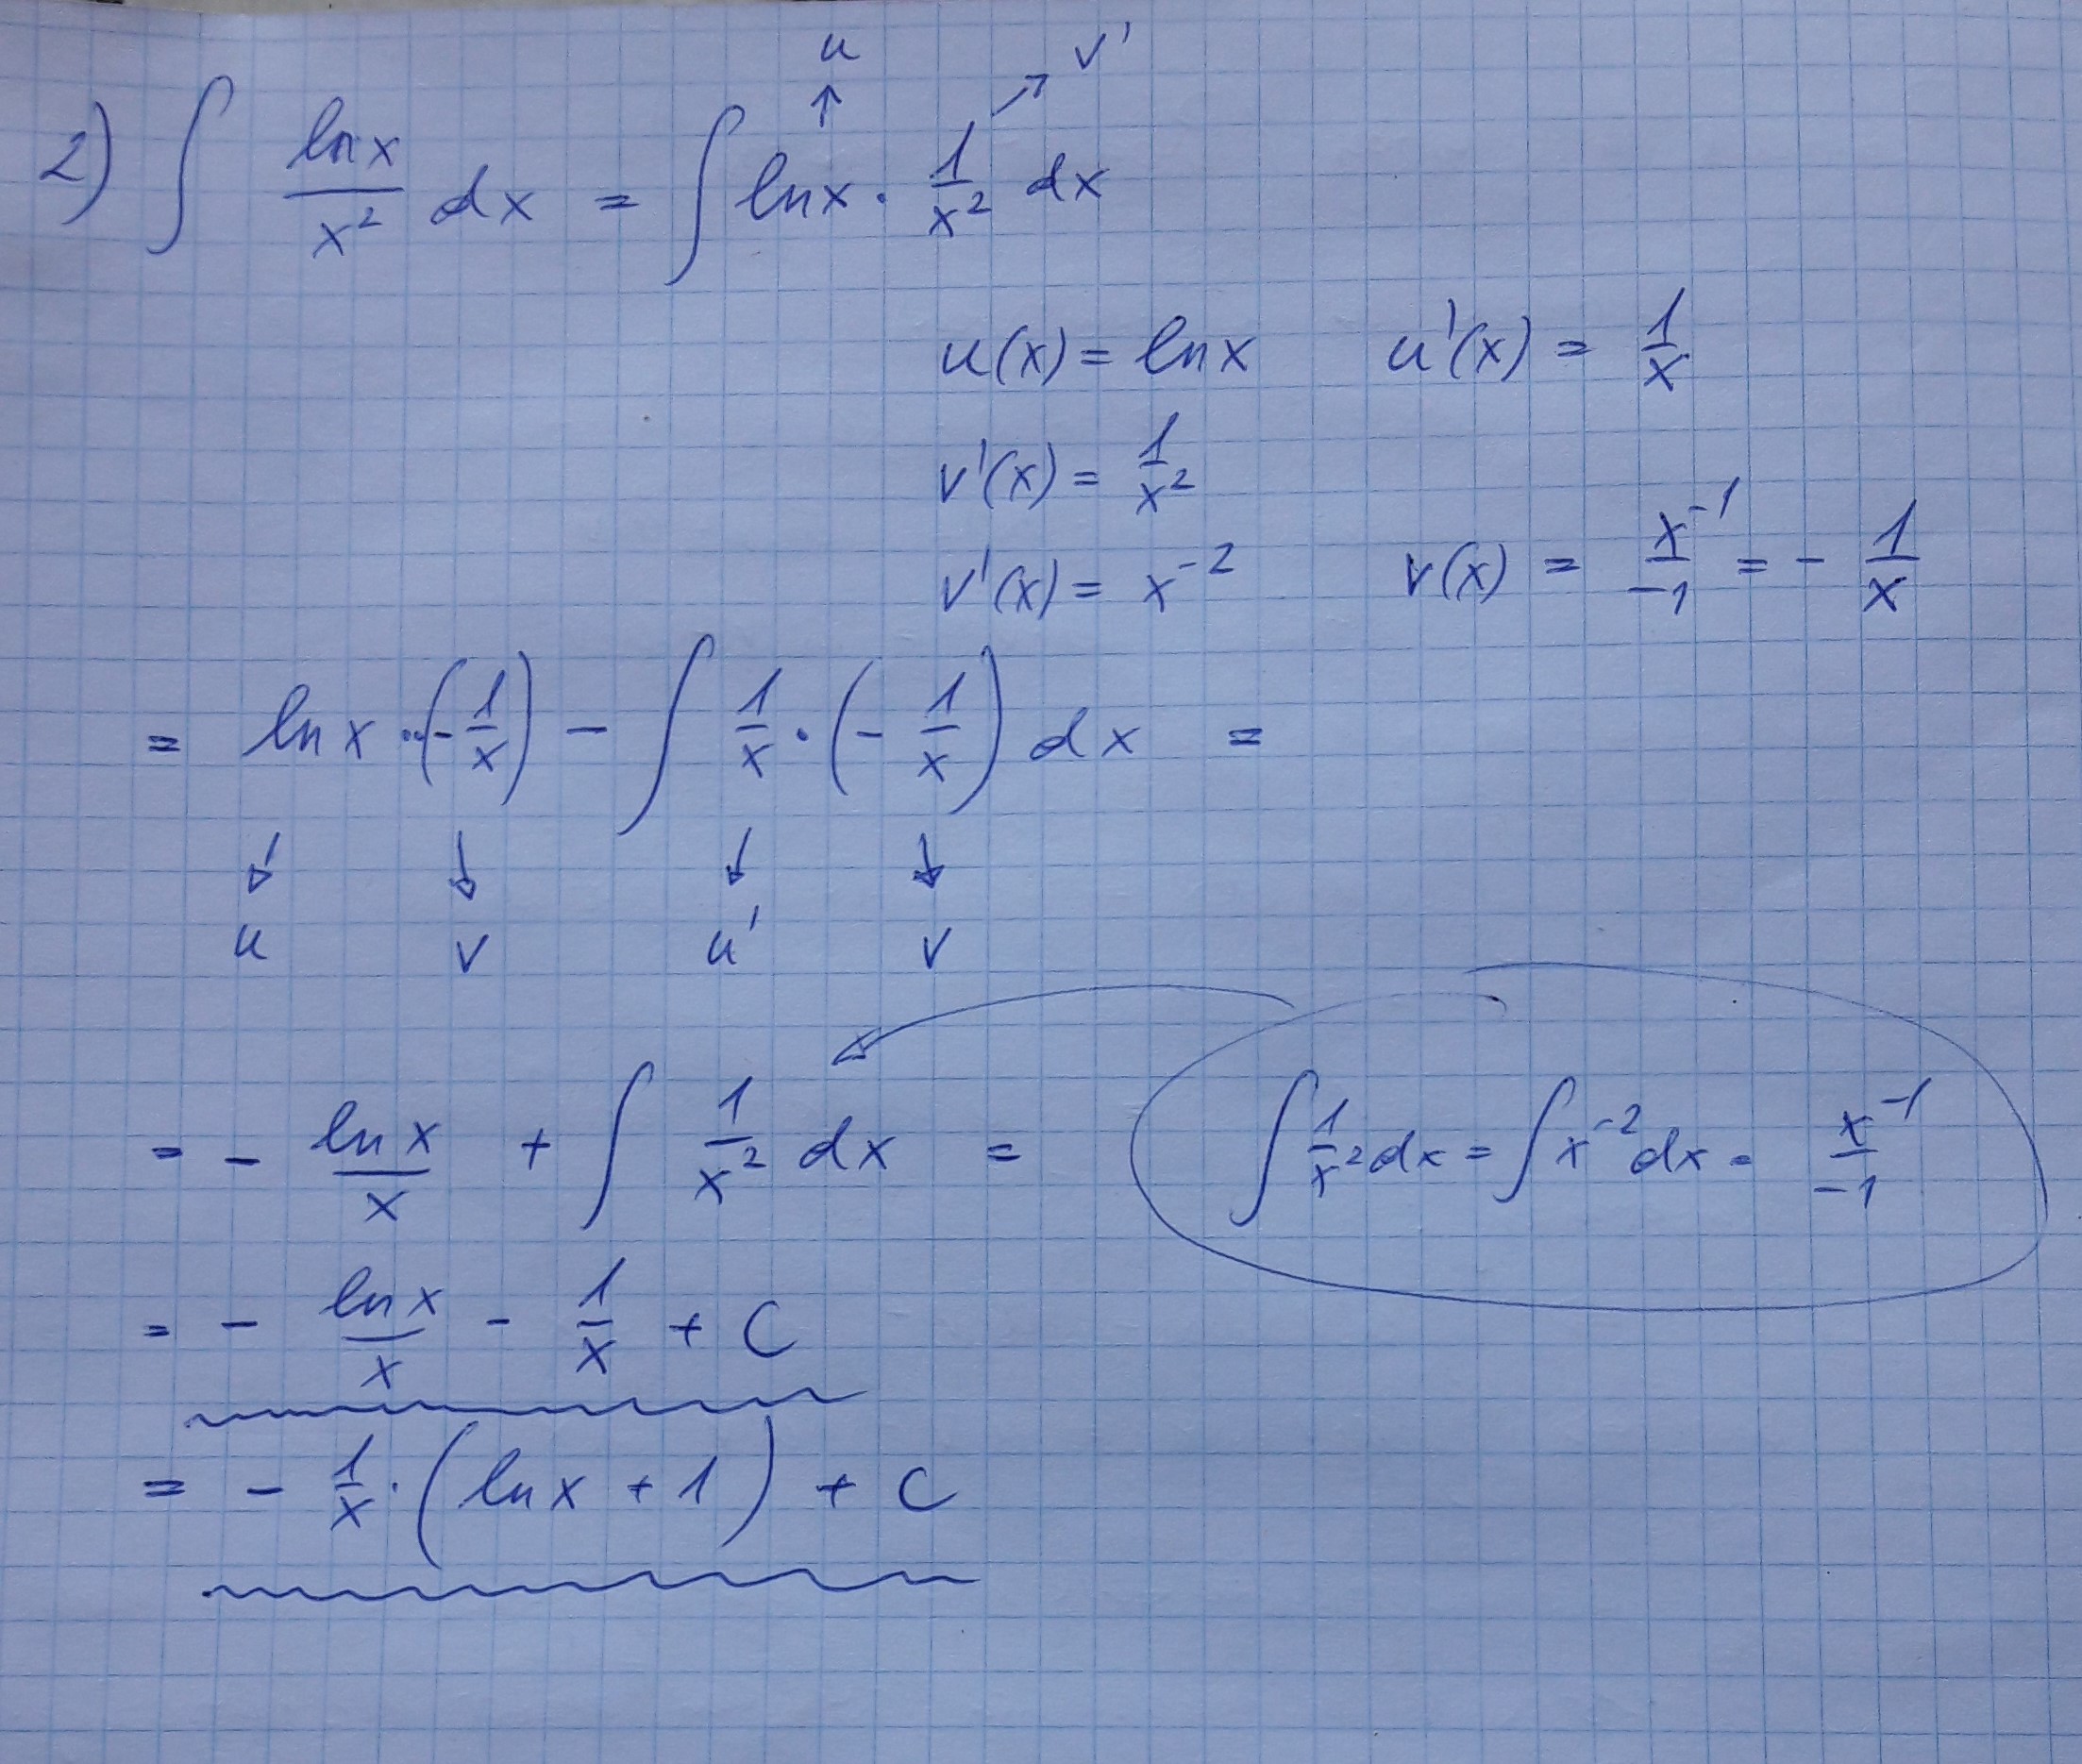 u v'
2) ∫ ln x / x² dx = ∫ ln x · 1/x² dx
u(x) = ln x u'(x) = 1/x
v'(x) = 1/x²
v'(x) = x⁻² v(x) = x⁻¹/-1 = - 1/x
= ln x · (- 1/x) - ∫ 1/x · (- 1/x) dx =
u v u' v
= - ln x / x + ∫ 1/x² dx = ∫ 1/x² dx = ∫ x⁻² dx = x⁻¹/-1
= - ln x / x - 1/x + C
= - 1/x · (ln x + 1) + C